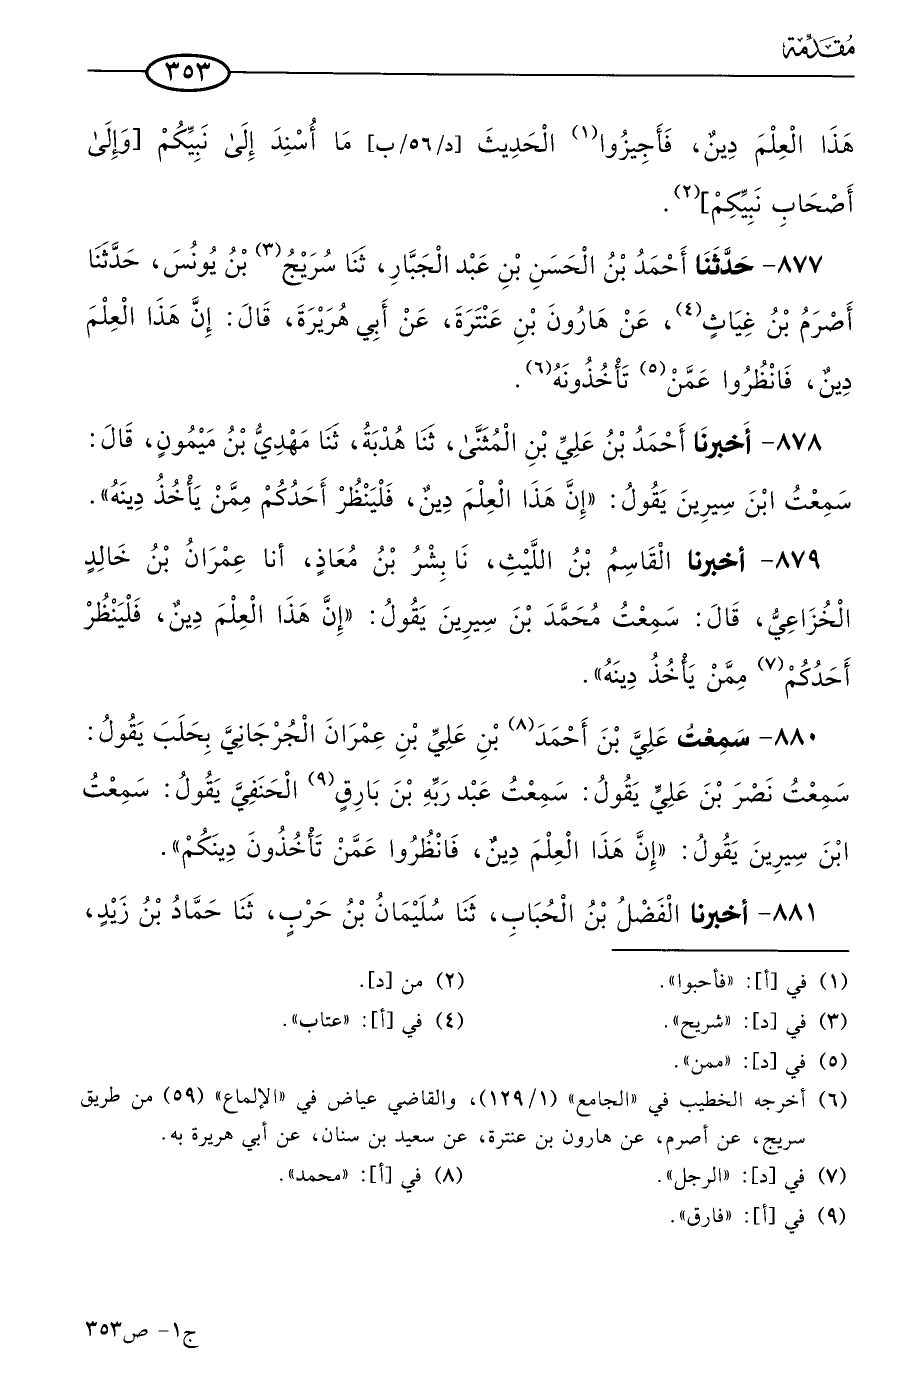 مُقَدِّمَة
٣٥٣
هَذَا الْعِلْمَ دِينٌ، فَأَجِيزُوا(١) الْحَدِيثَ [د/٥٦/ب] مَا أُسْنِدَ إِلَىٰ نَبِيِّكُمْ [وَإِلَىٰ
أَصْحَابِ نَبِيِّكِمْ](٢).
٨٧٧- حَدَّثَنَا أَحْمَدُ بْنُ الْحَسَنِ بْنِ عَبْد الْجَبَّارِ، ثَنَا سُرَيْجُ(٣) بْنُ يُونُسَ، حَدَّثَنَا
أَصْرَمُ بْنُ غِيَاثٍ(٤)، عَنْ هَارُونَ بْنِ عَنْتَرَةَ، عَنْ أَبِي هُرَيْرَةَ، قَالَ: إِنَّ هَذَا الْعِلْمَ
دِينٌ، فَانْظُرُوا عَمَّنْ(٥) تَأْخُذُونَهُ(٦).
٨٧٨- أَخبرنَا أَحْمَدُ بْنُ عَلِيِّ بْنِ الْمُثَنَّىٰ، ثَنَا هُدْبَةُ، ثَنَا مَهْدِيُّ بْنُ مَيْمُونٍ، قَالَ:
سَمِعْتُ ابْنَ سِيرِينَ يَقُولُ: «إِنَّ هَذَا الْعِلْمَ دِينٌ، فَلْيَنْظُرْ أَحَدُكُمْ مِمَّنْ يَأْخُذُ دِينَهُ».
٨٧٩- أخبرنا الْقَاسِمُ بْنُ اللَّيْثِ، نَا بِشْرُ بْنُ مُعَاذٍ، أنا عِمْرَانُ بْنُ خَالِدٍ
الْخُزَاعِيُّ، قَالَ: سَمِعْتُ مُحَمَّدَ بْنَ سِيرِينَ يَقُولُ: «إِنَّ هَذَا الْعِلْمَ دِينٌ، فَلْيَنْظُرْ
أَحَدُكُمْ(٧) مِمَّنْ يَأْخُذُ دِينَهُ».
٨٨٠- سَمِعْتُ عَلِيَّ بْنَ أَحْمَدَ(٨) بْنِ عَلِيِّ بْنِ عِمْرَانَ الْجُرْجَانِيَّ بِحَلَبَ يَقُولُ:
سَمِعْتُ نَصْرَ بْنَ عَلِيٍّ يَقُولُ: سَمِعْتُ عَبْد رَبِّهِ بْنَ بَارِقٍ(٩) الْحَنَفِيَّ يَقُولُ: سَمِعْتُ
ابْنَ سِيرِينَ يَقُولُ: «إِنَّ هَذَا الْعِلْمَ دِينٌ، فَانْظُرُوا عَمَّنْ تَأْخُذُونَ دِينَكُمْ».
٨٨١- أخبرنا الْفَضْلُ بْنُ الْحُبَابِ، ثَنَا سُلَيْمَانُ بْنُ حَرْبٍ، ثَنَا حَمَّادُ بْنُ زَيْدٍ،
(١) في [أ]: «فأحبوا». (٢) من [د].
(٣) في [د]: «شريح». (٤) في [أ]: «عتاب».
(٥) في [د]: «ممن».
(٦) أخرجه الخطيب في «الجامع» (١/١٢٩)، والقاضي عياض في «الإلماع» (٥٩) من طريق
سريج، عن أصرم، عن هارون بن عنترة، عن سعيد بن سنان، عن أبي هريرة به.
(٧) في [د]: «الرجل». (٨) في [أ]: «محمد».
(٩) في [أ]: «فارق».
ج١- ص٣٥٣